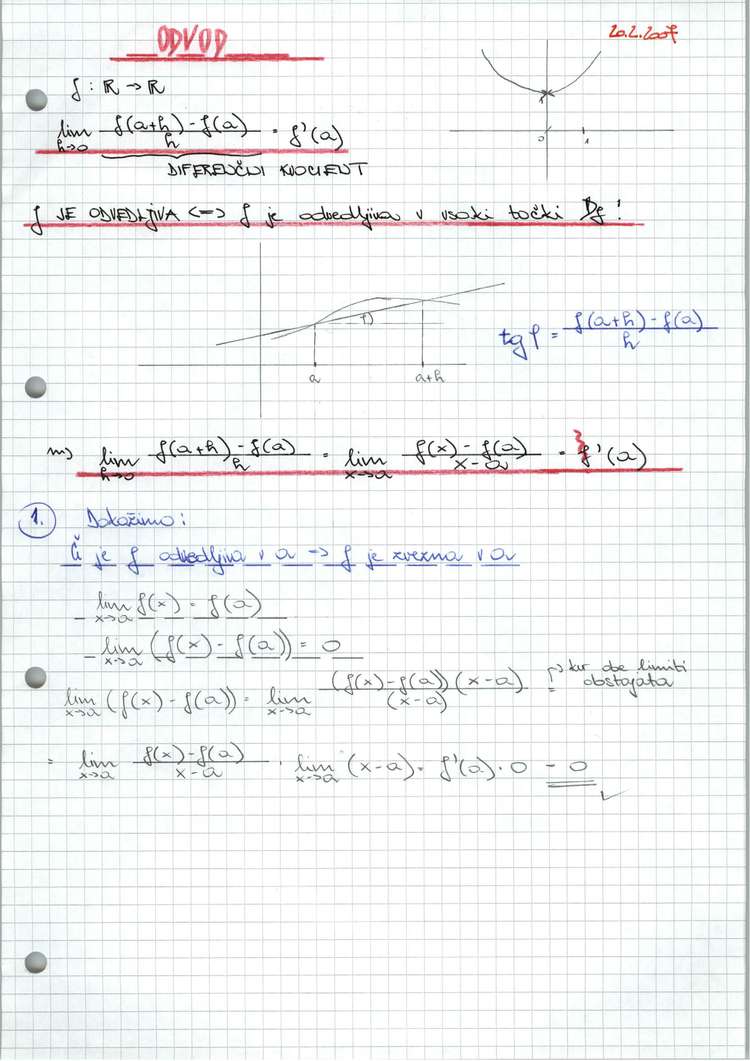 ODVOD
20.2.2007
f : ℝ → ℝ
lim h→0 (f(a+h) - f(a))/h = f'(a)
DIFERENČNI KVOCIENT
1
0 1
f JE ODVEDLJIVA <=> f je odvedljiva v vsaki točki Df!
φ
a a+h
tg φ = (f(a+h) - f(a))/h
lim h→0 (f(a+h) - f(a))/h = lim x→a (f(x) - f(a))/(x-a) = f'(a)
1. Dokažimo:
Če je f odvedljiva v a => f je zvezna v a
- lim x→a f(x) = f(a)
- lim x→a (f(x) - f(a)) = 0
lim x→a (f(x) - f(a)) = lim x→a ((f(x) - f(a))(x-a))/(x-a) =
ker obe limiti
obstajata
= lim x→a (f(x) - f(a))/(x-a) · lim x→a (x-a) = f'(a) · 0 = 0 ✓